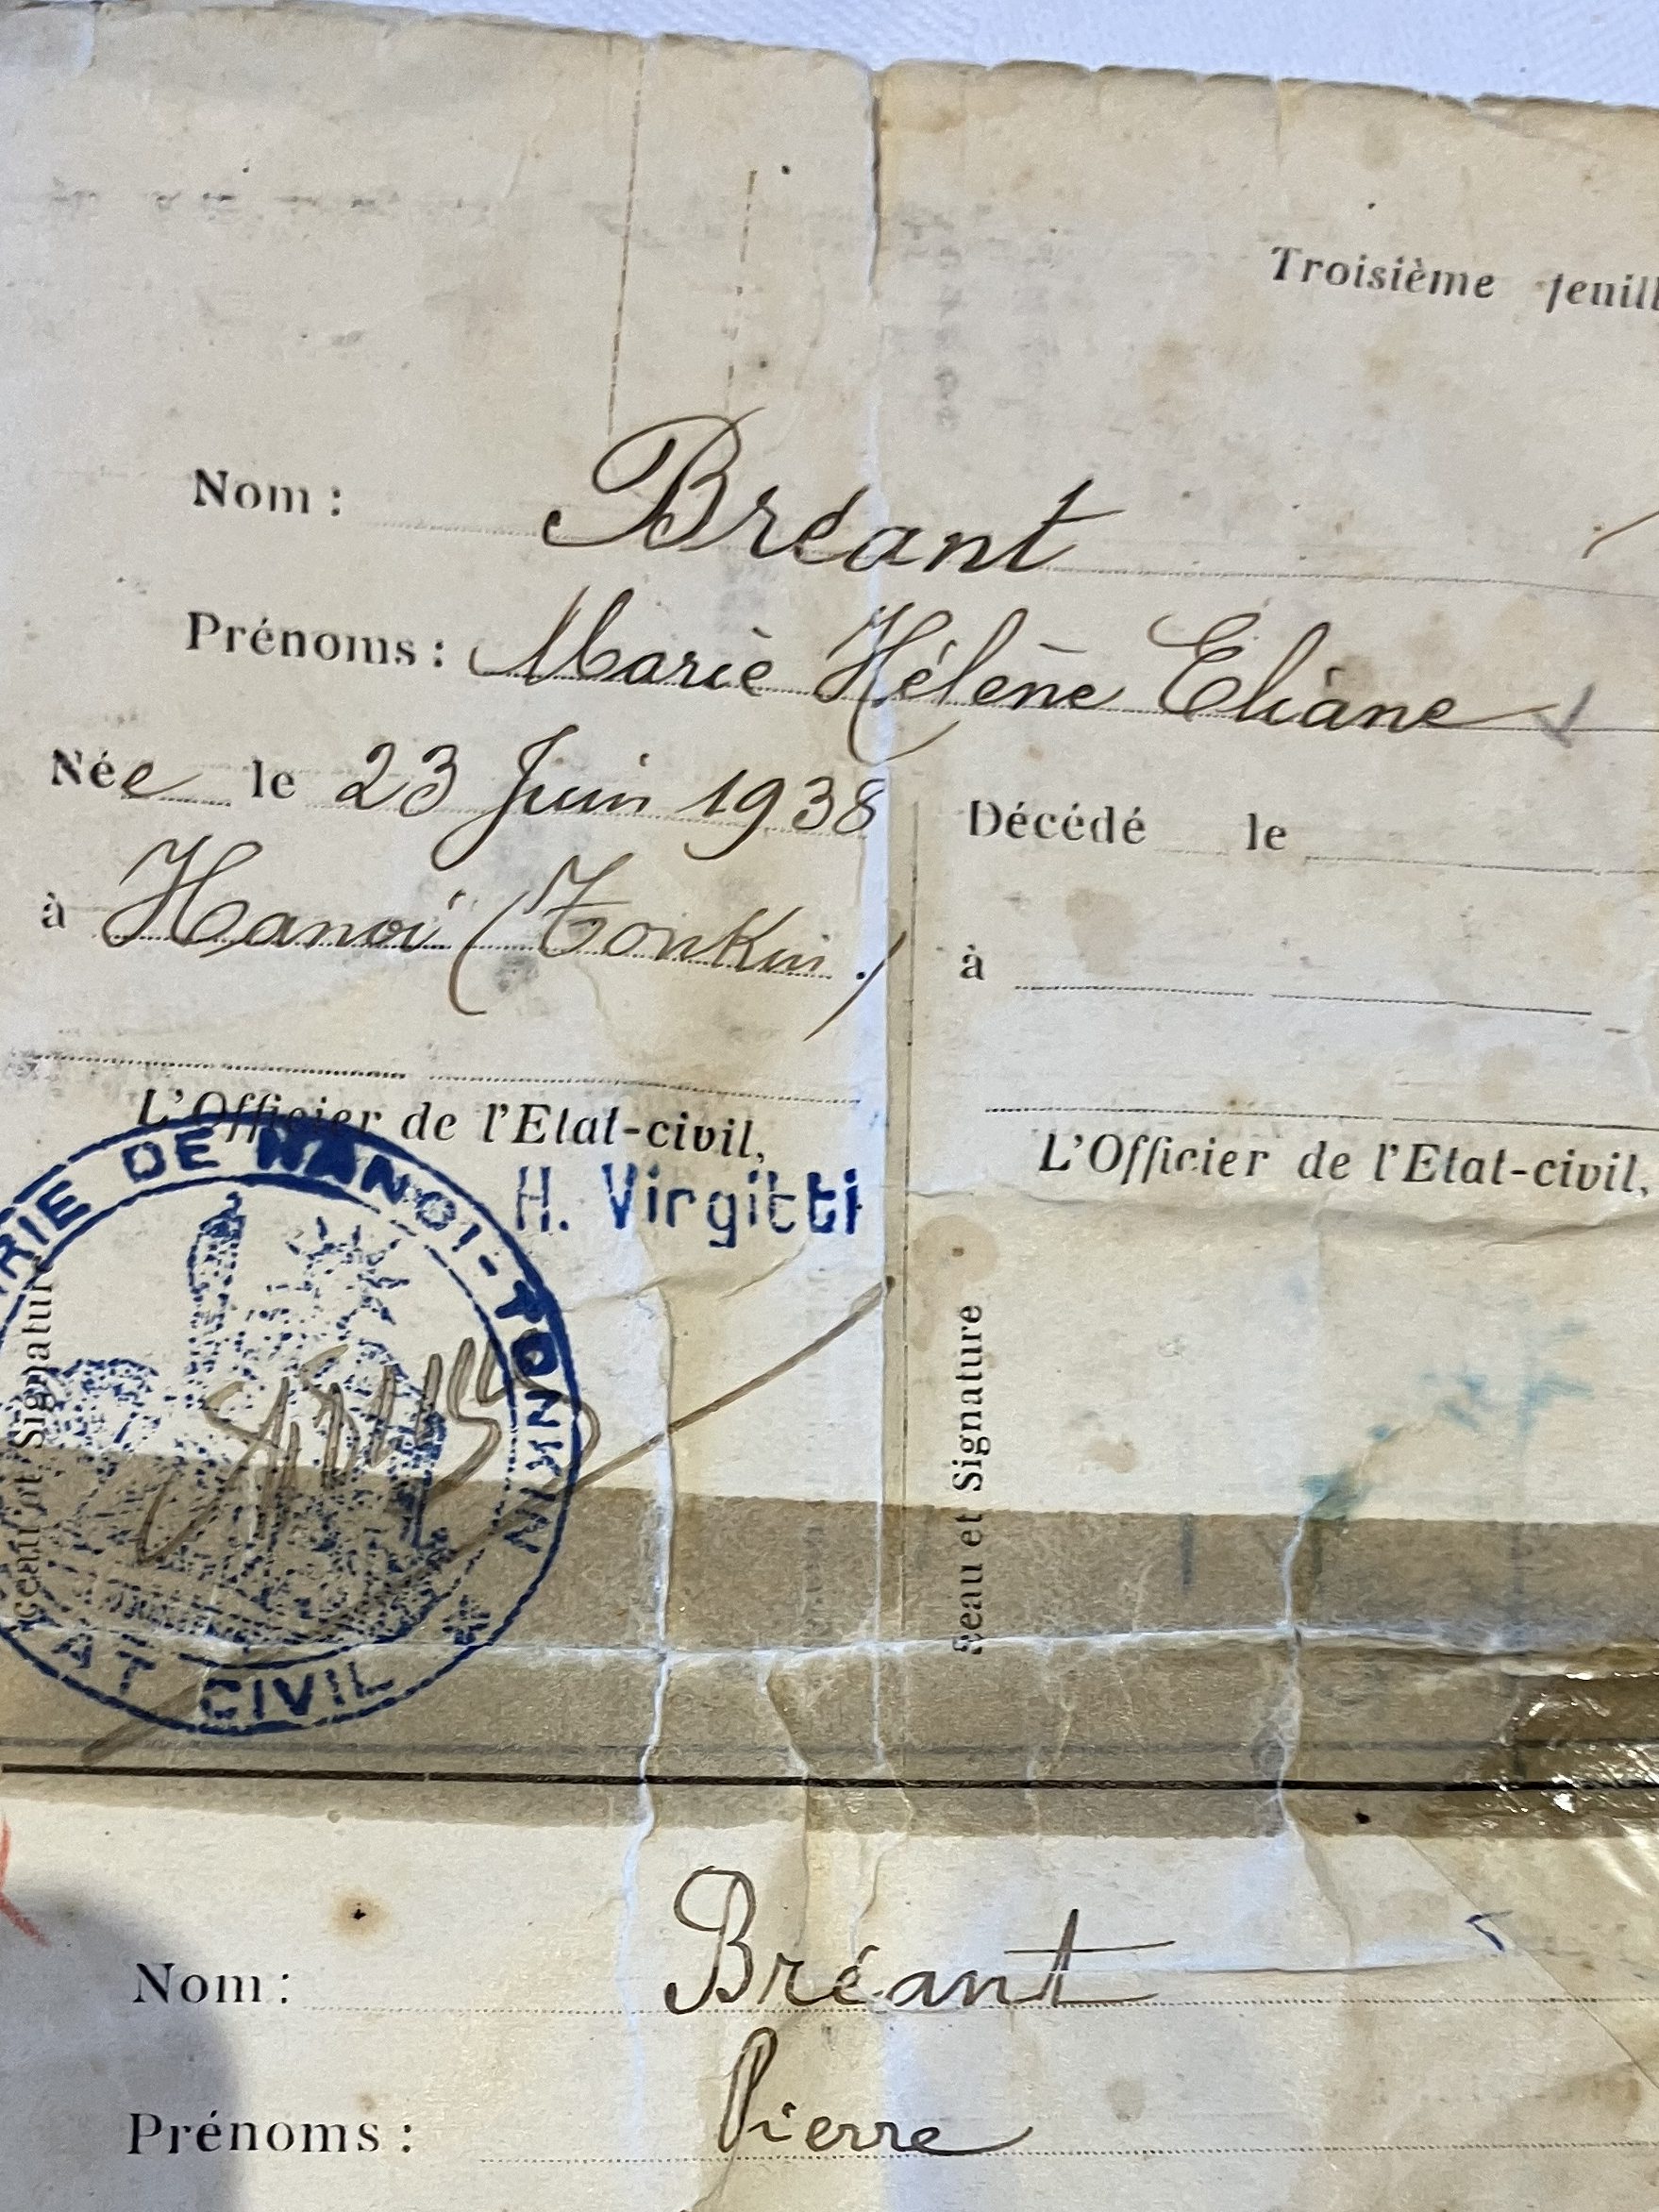 Troisième feuill
Nom : Bréant
Prénoms : Marie Hélène Eliane
Née le 23 Juin 1938
à Hanoi (Tonkin.)
L'Officier de l'Etat-civil,
H. Virgitti
RIE DE HANOI - TONKIN
AT CIVIL
Sceau et Signature
Décédé le
à
L'Officier de l'Etat-civil,
Sceau et Signature
Nom : Bréant
Prénoms : Pierre